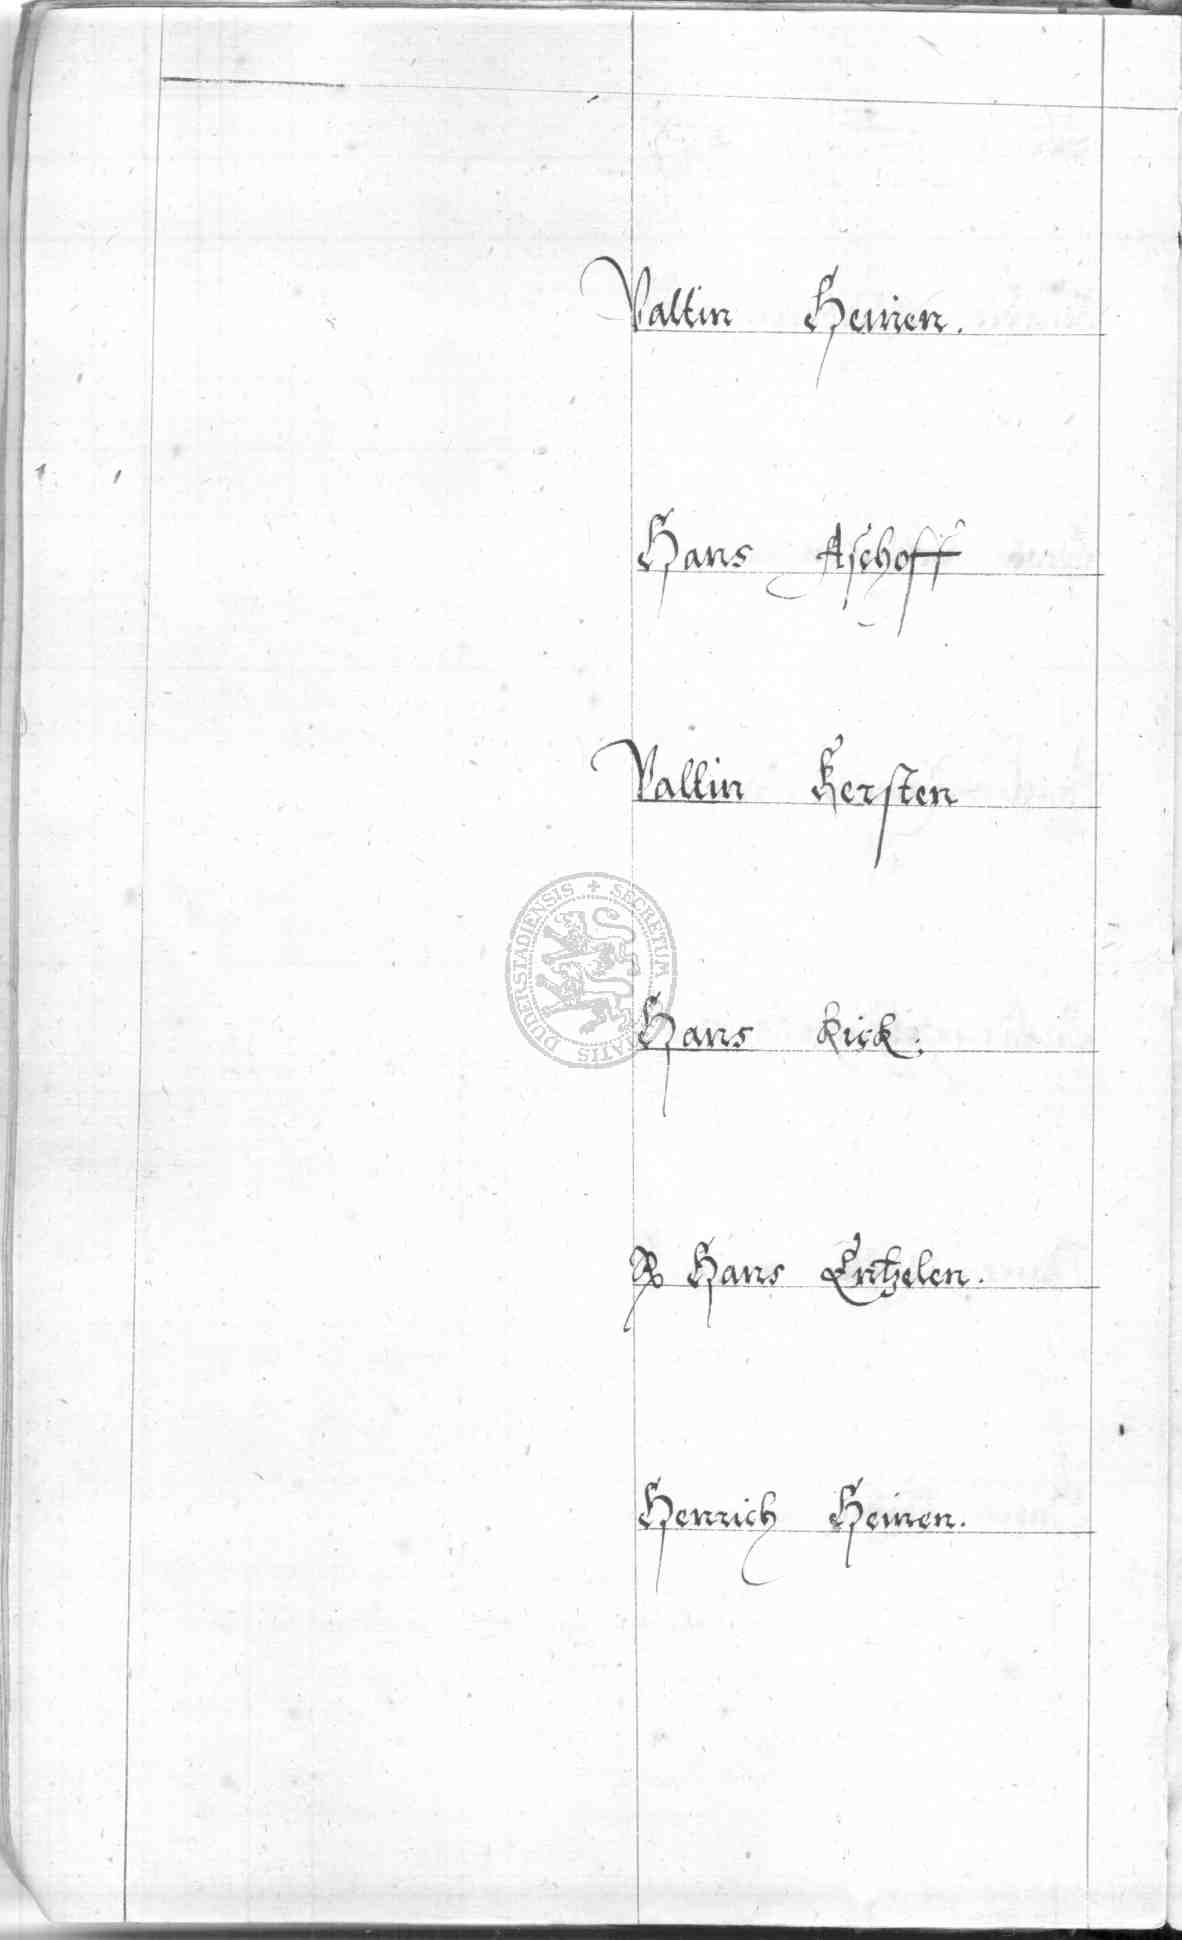 Valtin Heinen.
Hans Aschoff
Valtin Kersten
SECRETUM
DUDERSTADIENSIS
Hans Kick.
Hans Entzelen.
Henrich Heinen.